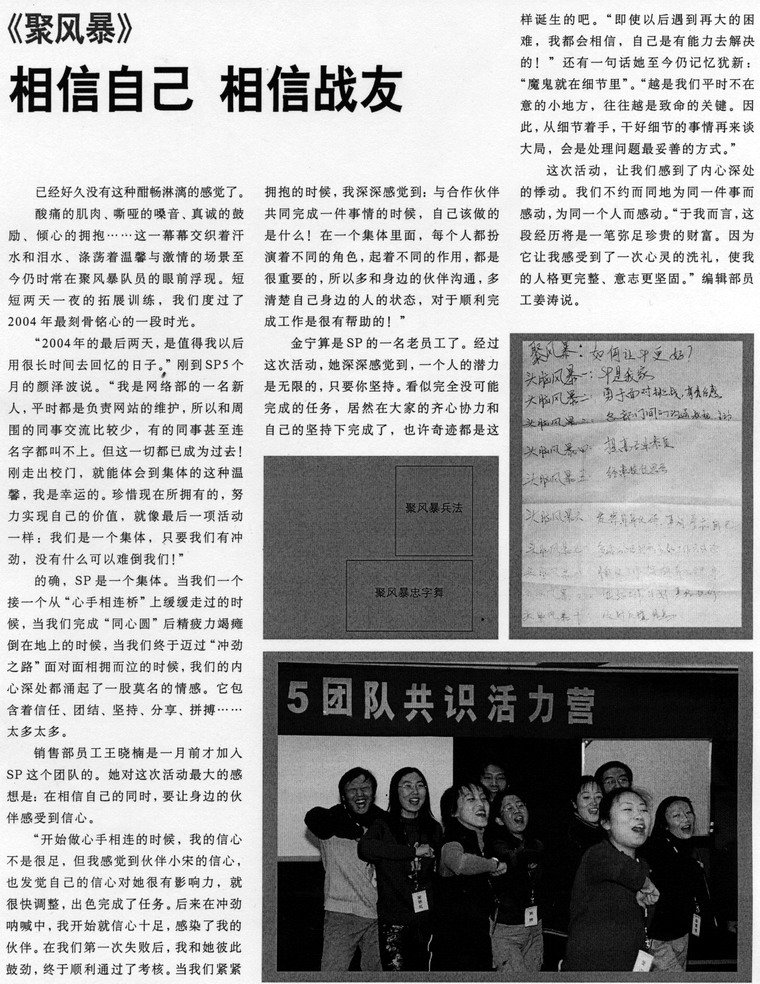 《聚风暴》
相信自己 相信战友
已经好久没有这种酣畅淋漓的感觉了。
酸痛的肌肉、嘶哑的嗓音、真诚的鼓
励、倾心的拥抱……这一幕幕交织着汗
水和泪水、涤荡着温馨与激情的场景至
今仍时常在聚风暴队员的眼前浮现。短
短两天一夜的拓展训练，我们度过了
2004年最刻骨铭心的一段时光。
“2004年的最后两天，是值得我以后
用很长时间去回忆的日子。”刚到SP5个
月的颜泽波说。“我是网络部的一名新
人，平时都是负责网站的维护，所以和周
围的同事交流比较少，有的同事甚至连
名字都叫不上。但这一切都已成为过去！
刚走出校门，就能体会到集体的这种温
馨，我是幸运的。珍惜现在所拥有的，努
力实现自己的价值，就像最后一项活动
一样：我们是一个集体，只要我们有冲
劲，没有什么可以难倒我们！”
的确，SP是一个集体。当我们一个
接一个从“心手相连桥”上缓缓走过的时
候，当我们完成“同心圆”后精疲力竭瘫
倒在地上的时候，当我们终于迈过“冲劲
之路”面对面相拥而泣的时候，我们的内
心深处都涌起了一股莫名的情感。它包
含着信任、团结、坚持、分享、拼搏……
太多太多。
销售部员工王晓楠是一月前才加入
SP这个团队的。她对这次活动最大的感
想是：在相信自己的同时，要让身边的伙
伴感受到信心。
“开始做心手相连的时候，我的信心
不是很足，但我感觉到伙伴小宋的信心，
也发觉自己的信心对她很有影响力，就
很快调整，出色完成了任务。后来在冲劲
呐喊中，我开始就信心十足，感染了我的
伙伴。在我们第一次失败后，我和她彼此
鼓劲，终于顺利通过了考核。当我们紧紧
拥抱的时候，我深深感觉到：与合作伙伴
共同完成一件事情的时候，自己该做的
是什么！在一个集体里面，每个人都扮
演着不同的角色，起着不同的作用，都是
很重要的，所以多和身边的伙伴沟通，多
清楚自己身边的人的状态，对于顺利完
成工作是很有帮助的！”
金宁算是SP的一名老员工了。经过
这次活动，她深深感觉到，一个人的潜力
是无限的，只要你坚持。看似完全没可能
完成的任务，居然在大家的齐心协力和
自己的坚持下完成了，也许奇迹都是这
样诞生的吧。“即使以后遇到再大的困
难，我都会相信，自己是有能力去解决
的！”还有一句话她至今仍记忆犹新：
“魔鬼就在细节里”。“越是我们平时不在
意的小地方，往往越是致命的关键。因
此，从细节着手，干好细节的事情再来谈
大局，会是处理问题最妥善的方式。”
这次活动，让我们感到了内心深处
的悸动。我们不约而同地为同一件事而
感动，为同一个人而感动。“于我而言，这
段经历将是一笔弥足珍贵的财富。因为
它让我感受到了一次心灵的洗礼，使我
的人格更完整、意志更坚固。”编辑部员
工姜涛说。
聚风暴：如何让SP更好？
头脑风暴一：SP是我家
头脑风暴二：勇于面对挑战，
头脑风暴三：
头脑风暴四：
头脑风暴五：
头脑风暴六：
聚风暴兵法
聚风暴忠字舞
5团队共识活力营